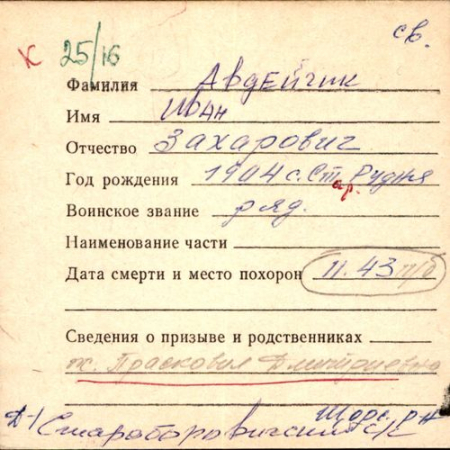 св.
К 25/16
Фамилия Авдейчик
Имя Иван
Отчество Захарович
Год рождения 1904 с. Стар. Рудня
Воинское звание ряд.
Наименование части
Дата смерти и место похорон 11.43 п/б
Сведения о призыве и родственниках
ж. Прасковия Дмитриевна
Щорс. р-н
Д-1 Староборовичский с/с